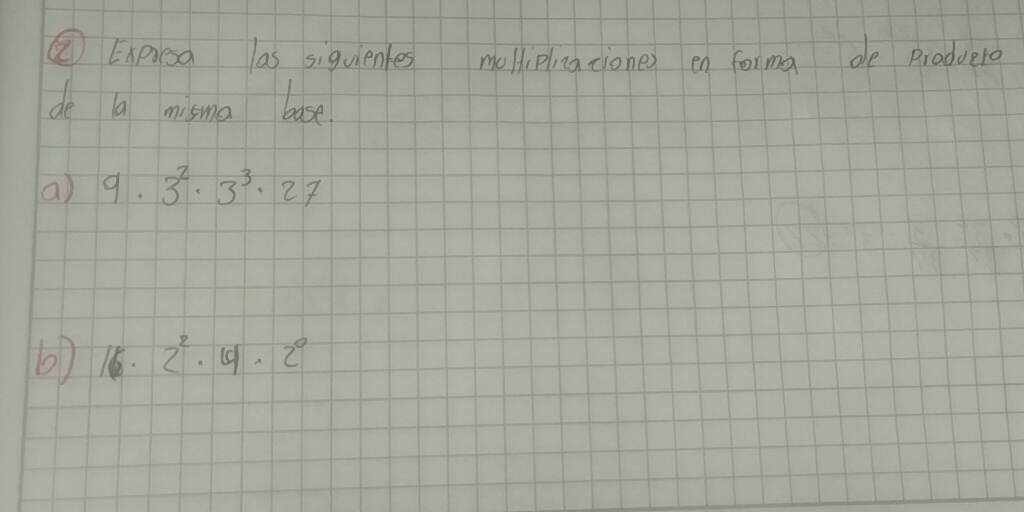 ② Expresa las siguientes multiplicaciones en forma de Producto
de la misma base.
a) 9 . 3² . 3³ . 27
b) 16 . 2² . 4 . 2⁰